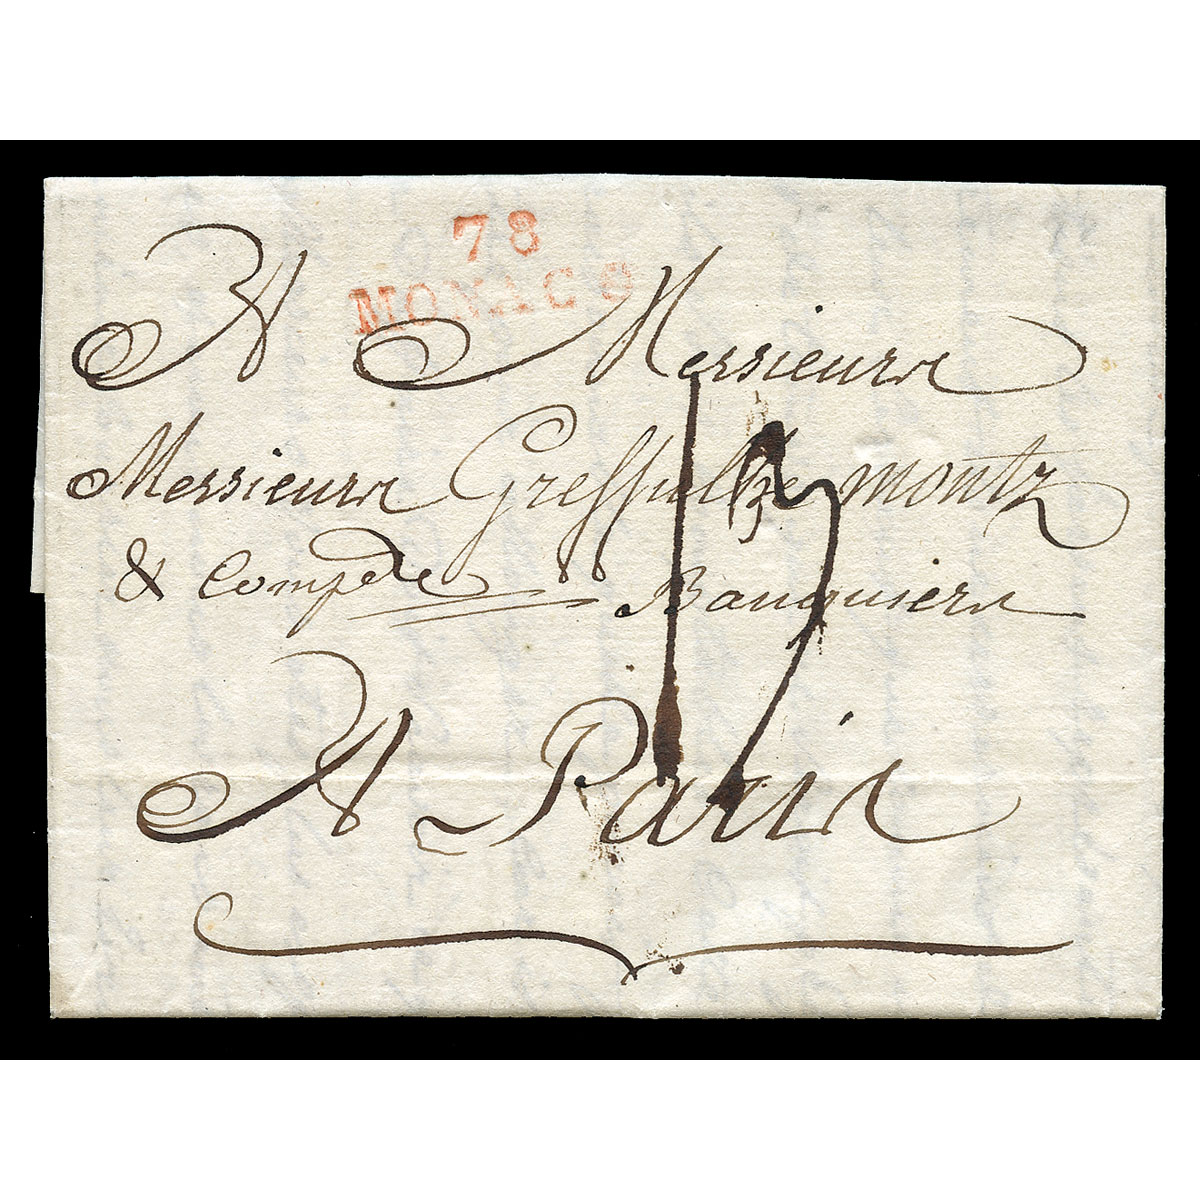 78
MONACO
A Messieurs
Messieurs Greffulhe montz
& Compe Banquiers
13
A Paris